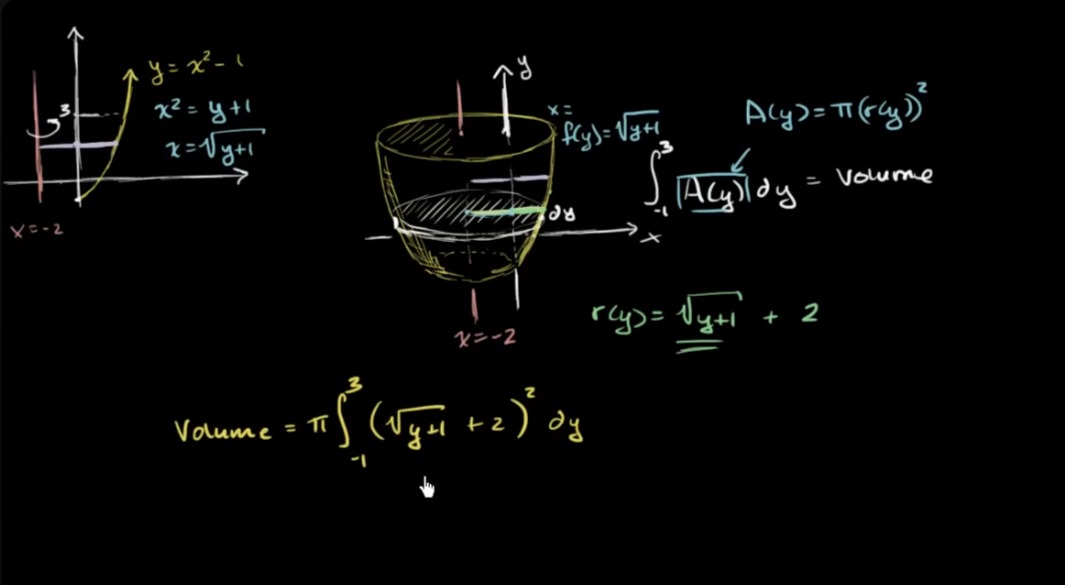 y = x² - 1
x² = y + 1
x = √y+1
3
x = -2
y
x =
f(y) = √y+1
dy
x
x = -2
A(y) = π(r(y))²
∫₋₁³ A(y) dy = Volume
r(y) = √y+1 + 2
Volume = π ∫₋₁³ (√y+1 + 2)² dy